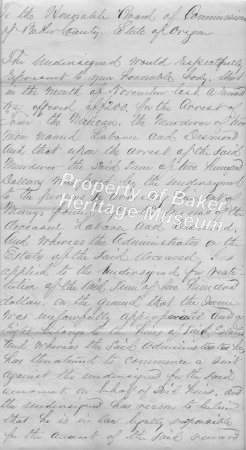 To the Honorable Board of Commissioners
of Baker County State of Oregon
The Undersigned would respectfully
represent to your Honorable Body, that
in the month of November last a reward
was offered of $200 for the Arrest of
the Mexican, the Murderer of two
men named Labaree and Desmond
And that upon the arrest of the said
Murderer the said Sum of two Hundred
Dollars was by the undersigned
to the
Money found
Deceased Labaree and Desmond,
And Whereas the Administrator on the
Estate of the Said deceased, has
applied to the undersigned for resti
tution of the said Sum of two hundred
dollars, on the ground that the same
was unlawfully appropriated and
belongs to the heirs of Said Estate
And whereas the said Administrator
has threatened to commence a suit
against the undersigned for the said
amount on behalf of said heirs. And
the undersigned has reason to believe
that he is in law legally responsible
for the amount of the said reward
Property of Baker
Heritage Museum